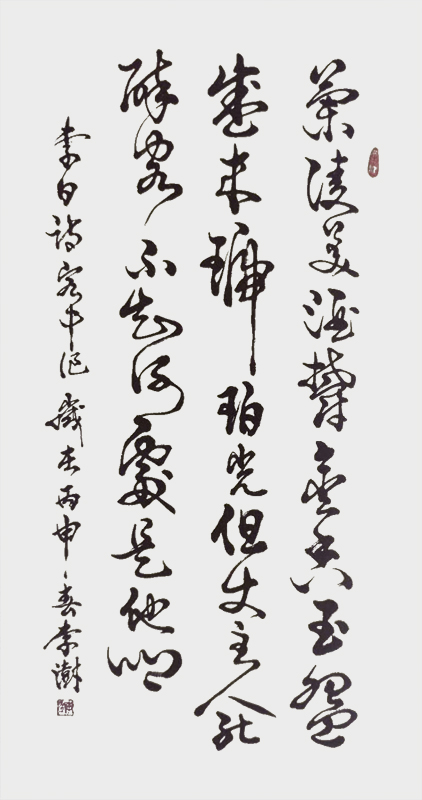 蘭陵美酒鬱金香玉盌
盛来琥珀光但使主人能
醉客不知何處是他鄉
李白詩客中作歲在丙申之春李澍